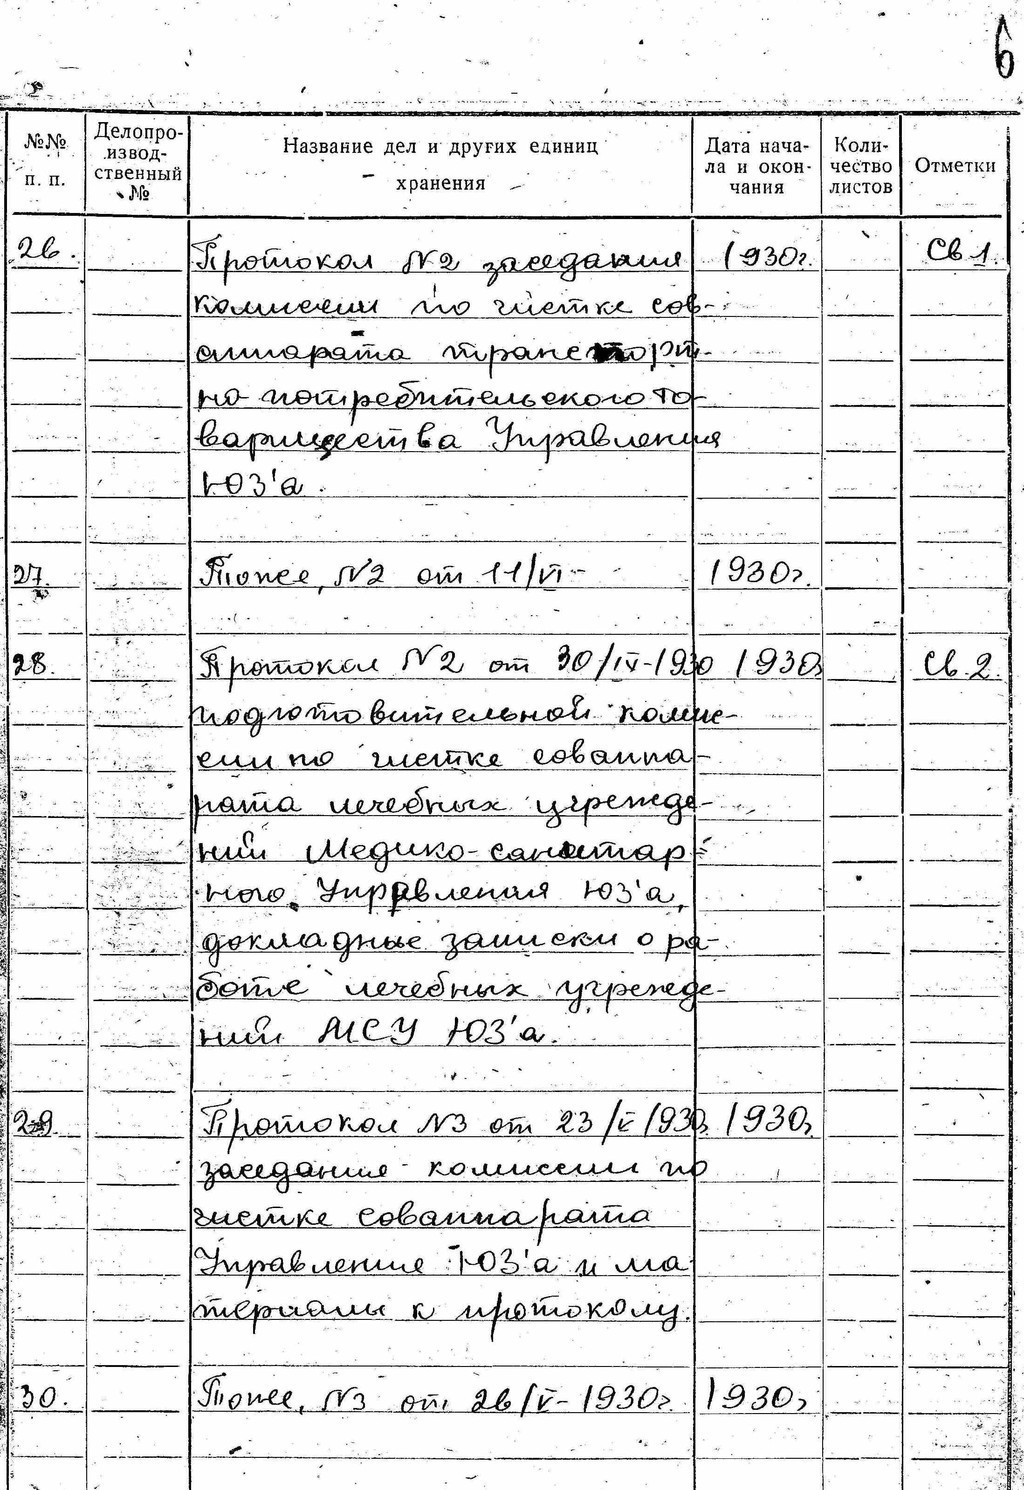 6
№№ п. п.
Делопро-извод-ственный №
Название дел и других единиц хранения
Дата нача-ла и окон-чания
Коли-чество листов
Отметки
26. Протокол №2 заседания 1930г. Св 1.
комиссии по чистке сов-
аппарата транспорт-
но-потребительского то-
варищества Управления
ЮЗ'а.
27. То же, №2 от 11/VI- 1930г.
28. Протокол №2 от 30/IV-1930 1930г Св. 2.
подготовительной комис-
сии по чистке соваппа-
рата лечебных учрежде-
ний Медико-санитар-
ного Управления ЮЗ'а,
докладные записки о ра-
боте лечебных учрежде-
ний МСУ ЮЗ'а.
29. Протокол №3 от 23/V 1930г. 1930г.
заседания комиссии по
чистке соваппарата
Управления ЮЗ'а и ма-
териалы к протоколу.
30. То же, №3 от 26/V-1930г. 1930г